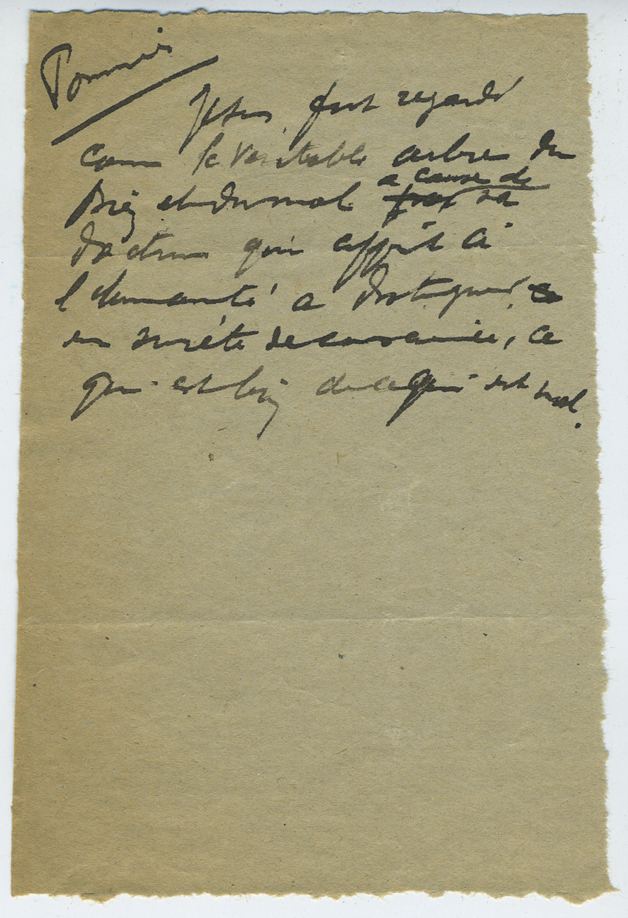 Pommier
Jésus fut regardé
comme le véritable arbre du
Bien et du mal a cause de sa
doctrine qui apprit à
l'humanité a distinguer
en sureté de conscience, ce
qui est bien de ce qui est mal.